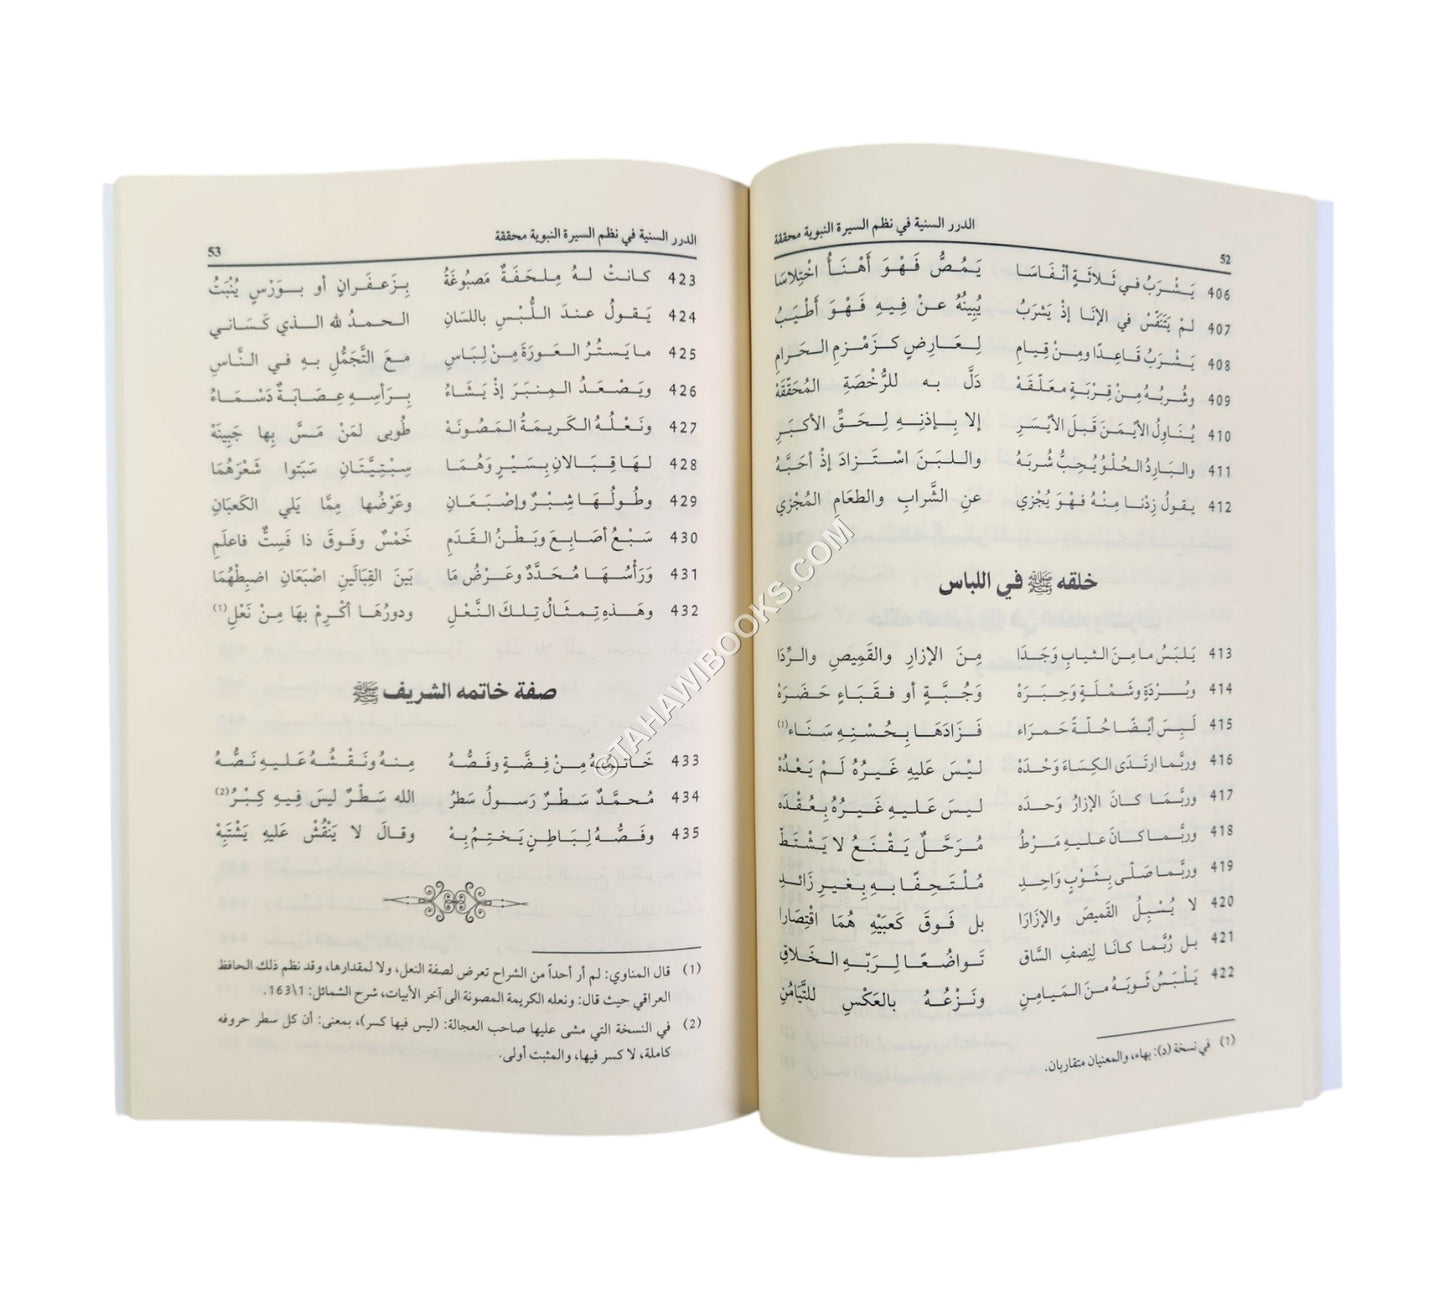 52 الدرر السنية في نظم السيرة النبوية محققة
406 يَشْرَبُ في ثَلاثَةٍ أنْفَاسَا يَمُصُّ فَهْوَ أَهْنَأُ اخْتِلاسَا
407 لمْ يَتَنَفَّسْ في الإنَا إذْ يَشْرَبُ يُبِينُهُ عنْ فِيهِ فَهْوَ أَطْيَبُ
408 يَشْرَبُ قَاعِدًا ومِنْ قِيامِ لِعَارِضٍ كزَمْزمِ الحَرامِ
409 وشُربُهُ مِنْ قِربَةٍ معَلَّقَهْ دَلَّ به للرُّخْصَةِ المُحَقَّقَهْ
410 يُنَاوِلُ الأيْمَنَ قَبلَ الأيْسَرِ إلا بِإذنِهِ لِحَقِّ الأكبَرِ
411 والبَارِدُ الحُلْوُ يُحِبُّ شُربَهُ واللبَنَ اسْتَزادَ إذْ أحَبَّهُ
412 يقولُ زِدْنا مِنْهُ فهْوَ يُجْزي عنِ الشَّرابِ والطعَامِ المُجْزي
خلقه ﷺ في اللباس
413 يَلبَسُ ما مِنَ الثيابِ وَجَدَا مِنَ الإزارِ والقَمِيصِ والرِّدَا
414 وبُرْدَةٍ وشَمْلَةٍ وَحِبَرَهْ وَجُبَّةٍ أو فقَبَاءٍ حَضَرَهْ
415 لَبِس أيْضًا حُلَّةً حَمراء فَزَادَهَا بِحُسْنِهِ سَنَاء(1)
416 وربَّما ارتَدَى الكِسَاءَ وَحْدَهْ ليْسَ عليهِ غَيرُهُ لَمْ يَعْدُهْ
417 وربَّمَا كانَ الإزارُ وَحدَهْ ليسَ عَليهِ غَيرُهُ بِعُقْدَهْ
418 وربَّما كانَ عليهِ مَرْطُ مُرَحَّلٌ يَقْنَعُ لا يَشْتَطُّ
419 وربَّما صَلّى بِثَوْبٍ وَاحِدِ مُلْتَحِفًا به بِغيرِ زَائِدِ
420 لا يُسْبِلُ القَمِيصَ والإزارَا بل فَوقَ كَعبَيْهِ هُمَا اقْتِصَارا
421 بل رُبَّما كانَا لِنِصفِ السَّاق تَواضُعًا لِرَبِّهِ الخَلاقِ
422 يَلْبَسُ ثوبَهُ منَ المَيامِنِ ونَزْعُهُ بالعَكْسِ للتَّيَامُنِ
(1) في نسخة (د): بهاء، والمعنيان متقاربان.
الدرر السنية في نظم السيرة النبوية محققة 53
423 كانتْ لهُ مِلحَفَةٌ مَصبُوغَةُ بِزَعفَرانٍ أو بوَرْسٍ يُنْبَتُ
424 يَقولُ عندَ اللُّبْسِ باللسَانِ الحمدُ لله الذي كَسَاني
425 ما يَستُرُ العَورَةَ مِنْ لِبَاسِ معَ التَّجَمُّلِ بهِ في النَّاسِ
426 ويَصْعَدُ المِنبَرَ إذْ يَشَاءُ بِرَأسِهِ عِصَابَةٌ دَسْمَاءُ
427 ونَعْلُهُ الكَرِيمَةُ المَصُونَهْ طُوبى لمَنْ مَسَّ بِها جَبِينَهْ
428 لهَا قِبَالانِ بِسَيْرٍ وَهُمَا سِبْتِيَّتَانِ سَبَتوا شَعْرَهُمَا
429 وطُولُهَا شِبْرٌ وإصْبَعَانِ وعَرْضُها مِمَّا يَلي الكَعبَانِ
430 سَبْعُ أصَابِعَ وبَطْنُ القَدَمِ خَمْسٌ وفَوقَ ذا فَسِتٌّ فاعلَمِ
431 وَرَأسُهَا مُحَدَّدٌ وعَرْضُ مَا بَينَ القِبَالَينِ اصْبَعَانِ اضبِطْهُمَا
432 وهَذهِ تِمثَالُ تِلكَ النَّعْلِ ودورُهَا أكْرِمْ بهَا مِنْ نَعْلِ(1)
صفة خاتمه الشريف ﷺ
433 خَاتمُهُ مِنْ فِضَّةٍ وفَصُّهُ مِنهُ ونَقْشُهُ عَليهِ نَصُّهُ
434 مُحمَّدٌ سَطْرٌ رَسولُ سَطرُ الله سَطْرٌ ليسَ فِيهِ كِبْرُ(2)
435 وفَصُّهُ لِبَاطِنٍ يَختِمُ بِهْ وقالَ لا يَنْقُشْ عَليهِ يَشْتَبِهْ
(1) قال المناوي: لم أر أحداً من الشراح تعرض لصفة النعل، ولا لمقدارها، وقد نظم ذلك الحافظ
العراقي حيث قال: ونعله الكريمة المصونة الى آخر الأبيات، شرح الشمائل: 1\163.
(2) في النسخة التي مشى عليها صاحب العجالة: (ليس فيها كسر)، بمعنى: أن كل سطر حروفه
كاملة، لا كسر فيها، والمثبت أولى.
©TAHAWIBOOKS.COM